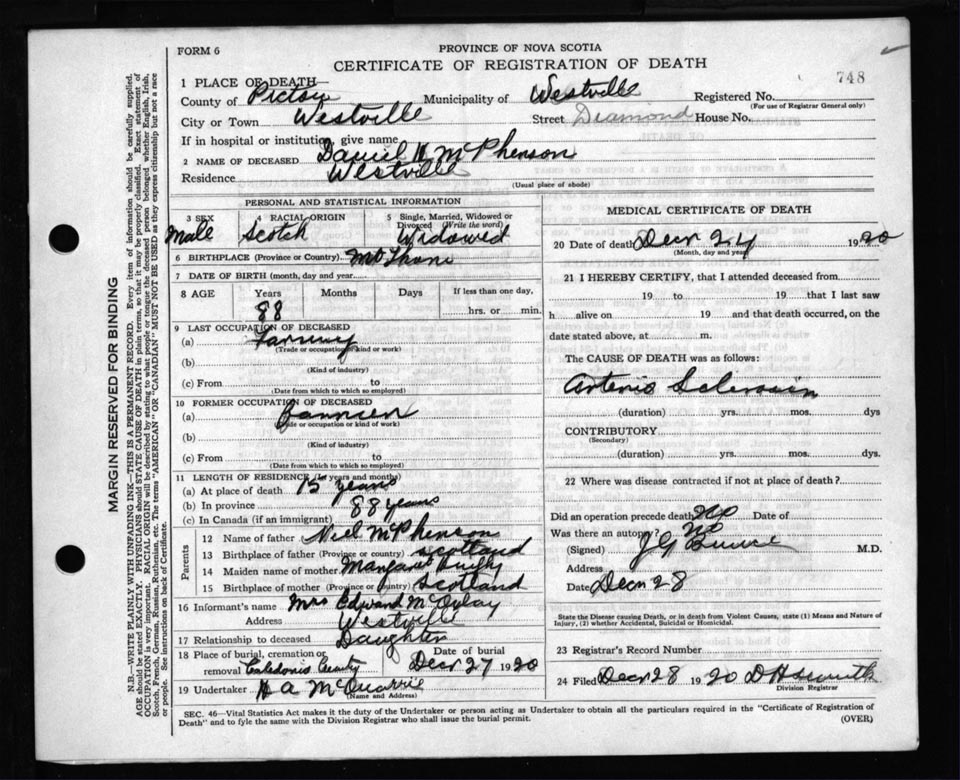 FORM 6
PROVINCE OF NOVA SCOTIA
CERTIFICATE OF REGISTRATION OF DEATH
748
1 PLACE OF DEATH—
County of Pictou Municipality of Westville Registered No.
(For use of Registrar General only)
City or Town Westville Street Diamond House No.
If in hospital or institution, give name
2 NAME OF DECEASED Daniel H McPherson
Residence Westville
(Usual place of abode)
PERSONAL AND STATISTICAL INFORMATION
3 SEX 4 RACIAL ORIGIN 5 Single, Married, Widowed or Divorced (Write the word)
Male Scotch Widowed
6 BIRTHPLACE (Province or Country)
7 DATE OF BIRTH (month, day and year)
8 AGE Years Months Days If less than one day,
88 hrs. or min.
9 LAST OCCUPATION OF DECEASED
(a)
(Trade or occupation or kind of work)
(b)
(Kind of industry)
(c) From to
(Date from which to which so employed)
10 FORMER OCCUPATION OF DECEASED
(a)
(Trade or occupation or kind of work)
(b)
(Kind of industry)
(c) From to
(Date from which to which so employed)
11 LENGTH OF RESIDENCE (in years and months)
(a) At place of death 15 years
(b) In province 88 years
(c) In Canada (if an immigrant)
Parents
12 Name of father Niel McPherson
13 Birthplace of father (Province or country) Scotland
14 Maiden name of mother Margaret
15 Birthplace of mother (Province or country) Scotland
16 Informant's name Mrs Edward
Address Westville
17 Relationship to deceased Daughter
18 Place of burial, cremation or removal Date of burial
Caledonia Decr 27 1920
19 Undertaker H A McQuarrie
(Name and Address)
MEDICAL CERTIFICATE OF DEATH
20 Date of death Decr 24 1920
(Month, day and year)
21 I HEREBY CERTIFY, that I attended deceased from
19 to 19 that I last saw
h alive on 19 and that death occurred, on the
date stated above, at m.
The CAUSE OF DEATH was as follows:
Arterio Sclerosis
(duration) yrs. mos. dys
CONTRIBUTORY
(Secondary)
(duration) yrs. mos. dys.
22 Where was disease contracted if not at place of death?
Did an operation precede death? No Date of
Was there an autopsy? No
(Signed) M.D.
Address
Date Decr 28
State the Disease causing Death, or in death from Violent Causes, state (1) Means and Nature of
Injury, (2) whether Accidental, Suicidal or Homicidal.
23 Registrar's Record Number
24 Filed Decr 28 1920 D H Smith
Division Registrar
SEC. 46—Vital Statistics Act makes it the duty of the Undertaker or person acting as Undertaker to obtain all the particulars required in the "Certificate of Registration of
Death" and to fyle the same with the Division Registrar who shall issue the burial permit.
(OVER)
MARGIN RESERVED FOR BINDING
N.B.—WRITE PLAINLY, WITH UNFADING INK.—THIS IS A PERMANENT RECORD. Every item of information should be carefully supplied.
AGE should be stated EXACTLY. PHYSICIANS should STATE CAUSE OF DEATH in plain terms, so that it may be properly classified. Exact statement of
OCCUPATION is very important. RACIAL ORIGIN will be described by stating to what people or tongue the deceased person belonged whether English, Irish,
Scotch, French, German, Russian, Ruthenian, etc. The terms "AMERICAN" OR "CANADIAN" MUST NOT BE USED as they express citizenship but not a race
or people. See instructions on back of Certificate.